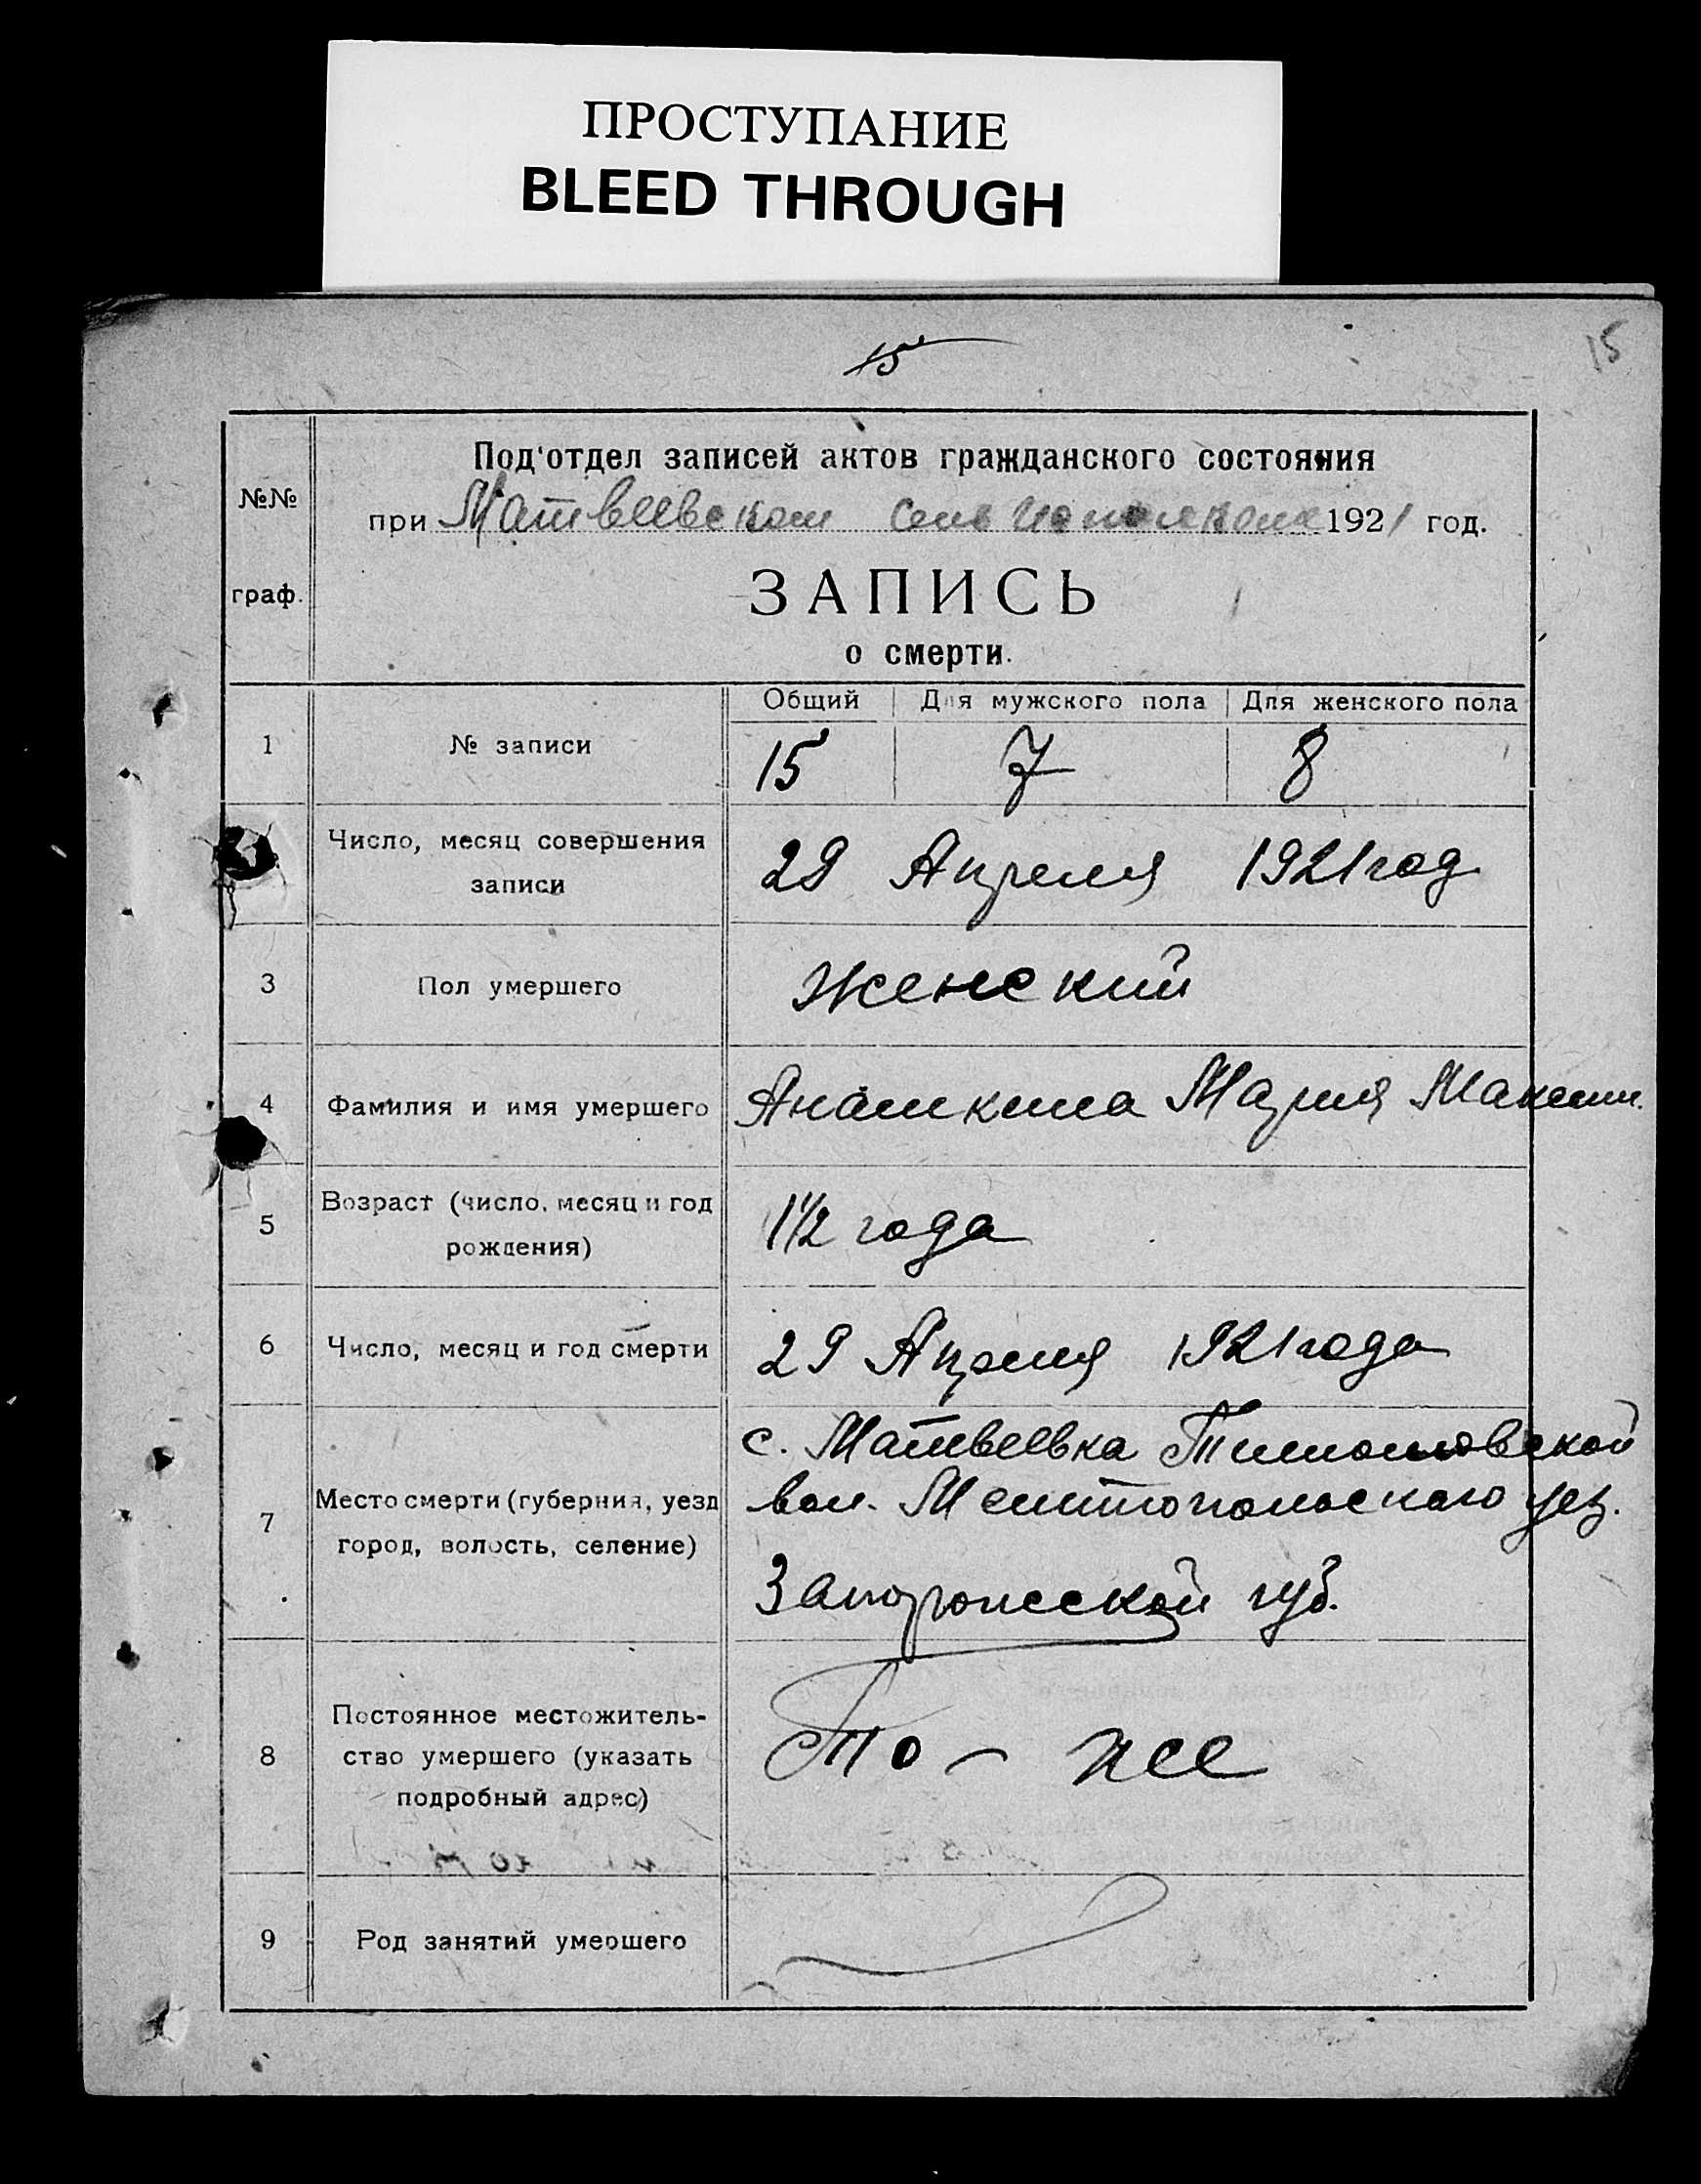 ПРОСТУПАНИЕ
BLEED THROUGH
15
15
№№ граф.
Под'отдел записей актов гражданского состояния
при Матвеевском Сель Исполкоме 1921 год.
ЗАПИСЬ
о смерти.
Общий Для мужского пола Для женского пола
1 № записи 15 7 8
Число, месяц совершения
записи
29 Апреля 1921 год
3 Пол умершего Женский
4 Фамилия и имя умершего Анашкина Мария Максим.
5 Возраст (число, месяц и год
рождения)
1½ года
6 Число, месяц и год смерти 29 Апреля 1921 года
7 Место смерти (губерния, уезд
город, волость, селение)
с. Матвеевка
вол. Мелитопольского уез.
Запорожской губ.
8 Постоянное местожитель-
ство умершего (указать
подробный адрес)
то - же
9 Род занятий умершего